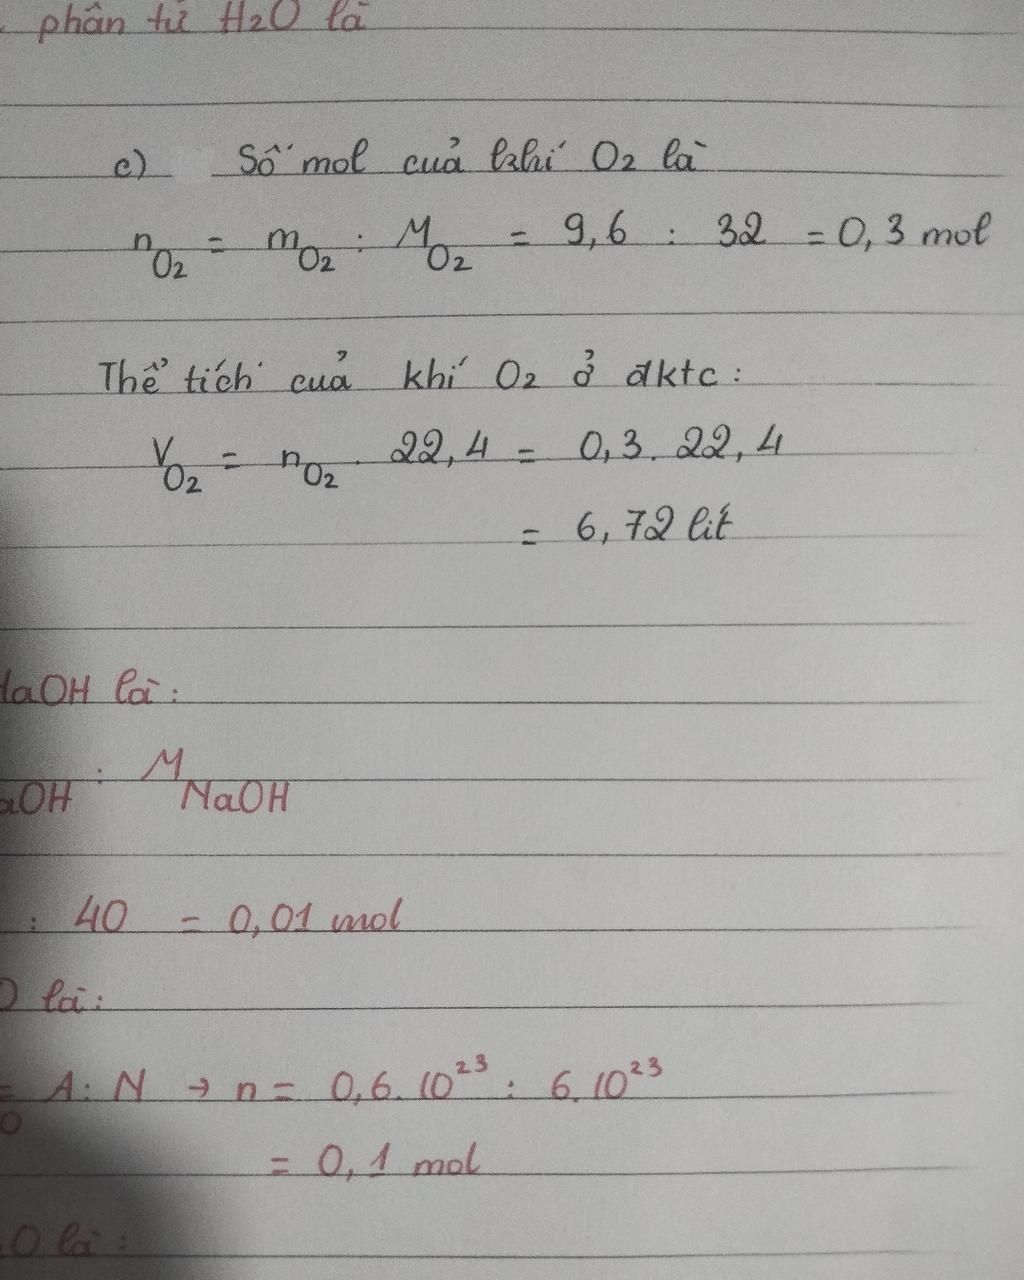 phân tử H2O là
c) Số mol của khí O2 là
nO2 = mO2 : MO2 = 9,6 : 32 = 0,3 mol
Thể tích của khí O2 ở đktc:
VO2 = nO2 . 22,4 = 0,3 . 22,4
= 6,72 lít
NaOH là:
aOH : MNaOH
: 40 = 0,01 mol
O là:
= A : N → n = 0,6.10²³ : 6.10²³
= 0,1 mol
O là: